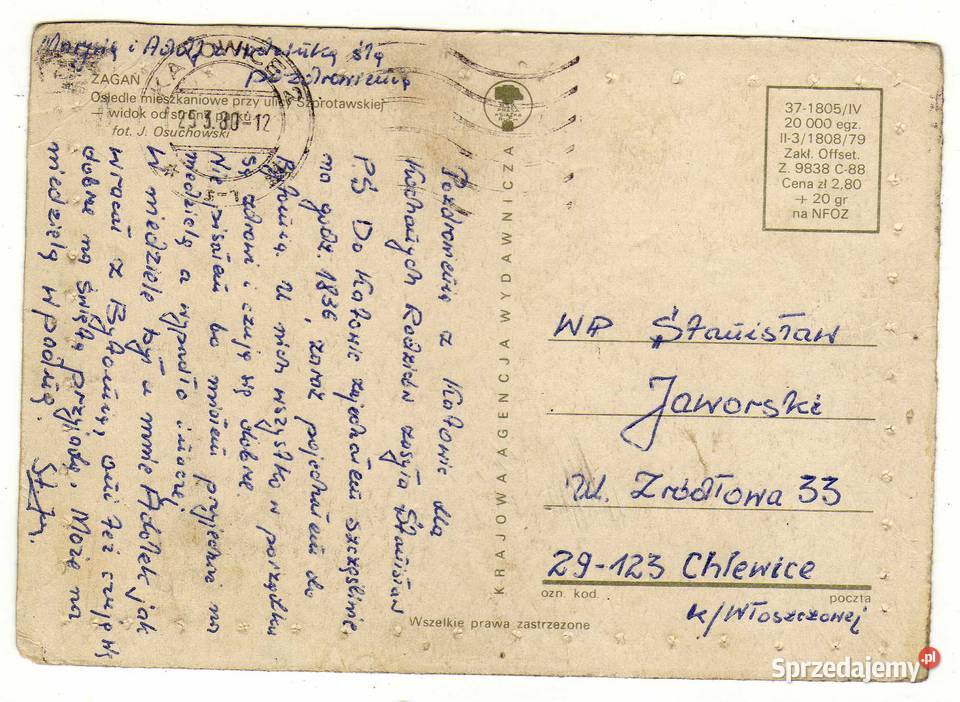 Marysia i Adolf z rodzinką ślą
pozdrowienia
ŻAGAŃ
Osiedle mieszkaniowe przy ulicy Szprotawskiej
— widok od strony parku
fot. J. Osuchowski
KATOWICE 2
25.3.80-12
Pozdrowienia z Katowic dla
Kochanych Rodziców zasyła Stanisław
PS Do Katowic zajechałem szczęśliwie
na godz. 1836, zaraz pojechałem do
Bytomia. U nich wszystko w porządku
są zdrowi i czują się dobrze.
Nie pisałem bo miałem przyjechać na
niedzielę a wypadło inaczej
W niedziele był u mnie Adolek jak
wracał z Bytomia, oni też czują się
dobrze na Święta przyjadą. Może na
niedzielę wpadnę.
KRAJOWA AGENCJA WYDAWNICZA
37-1805/IV
20 000 egz.
II-3/1808/79
Zakł. Offset.
Z. 9838 C-88
Cena zł 2,80
+ 20 gr
na NFOZ
WP Stanisław
Jaworski
ul. Źródłowa 33
29-123 Chlewice
ozn. kod. poczta
k/Włoszczowej
Wszelkie prawa zastrzeżone
Sprzedajemy.pl